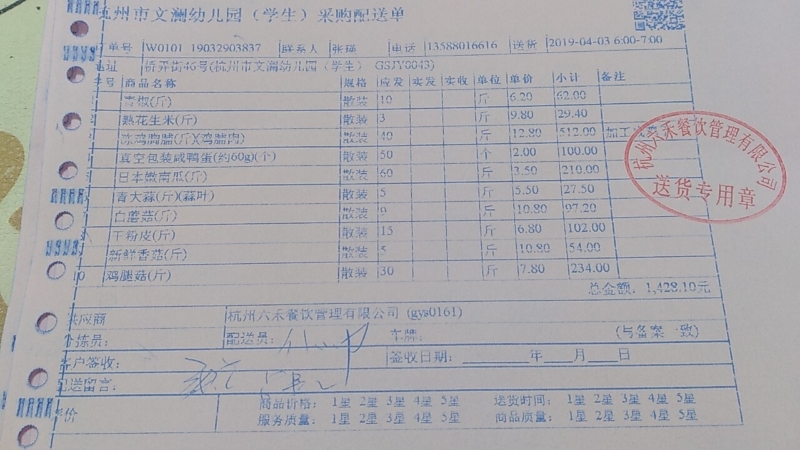 杭州市文澜幼儿园（学生）采购配送单
单号 W0101 19032903837 联系人 张瑶 电话 13588016616 送货 2019-04-03 6:00-7:00
地址 桥弄街46号(杭州市文澜幼儿园（学生） GSJY0043)
号 商品名称 规格 应发 实发 实收 单位 单价 小计 备注
青椒(斤) 散装 10 斤 6.20 62.00
熟花生米(斤) 散装 3 斤 9.80 29.40
冻鸡胸脯(斤)(鸡脯肉) 散装 40 斤 12.80 512.00 加工
真空包装咸鸭蛋(约60g)(个) 散装 50 个 2.00 100.00
日本嫩南瓜(斤) 散装 60 斤 3.50 210.00
青大蒜(斤)(蒜叶) 散装 5 斤 5.50 27.50
白蘑菇(斤) 散装 9 斤 10.80 97.20
干粉皮(斤) 散装 15 斤 6.80 102.00
新鲜香菇(斤) 散装 5 斤 10.80 54.00
鸡腿菇(斤) 散装 30 斤 7.80 234.00
总金额: 1,428.10元
供应商 杭州六禾餐饮管理有限公司 (gys0161)
分拣员: 配送员: 车牌: (与备案一致)
客户签收: 签收日期: 年 月 日
配送留言:
价 商品价格: 1星 2星 3星 4星 5星 送货时间: 1星 2星 3星 4星 5星
服务质量: 1星 2星 3星 4星 5星 商品质量: 1星 2星 3星 4星 5星
杭州六禾餐饮管理有限公司
送货专用章